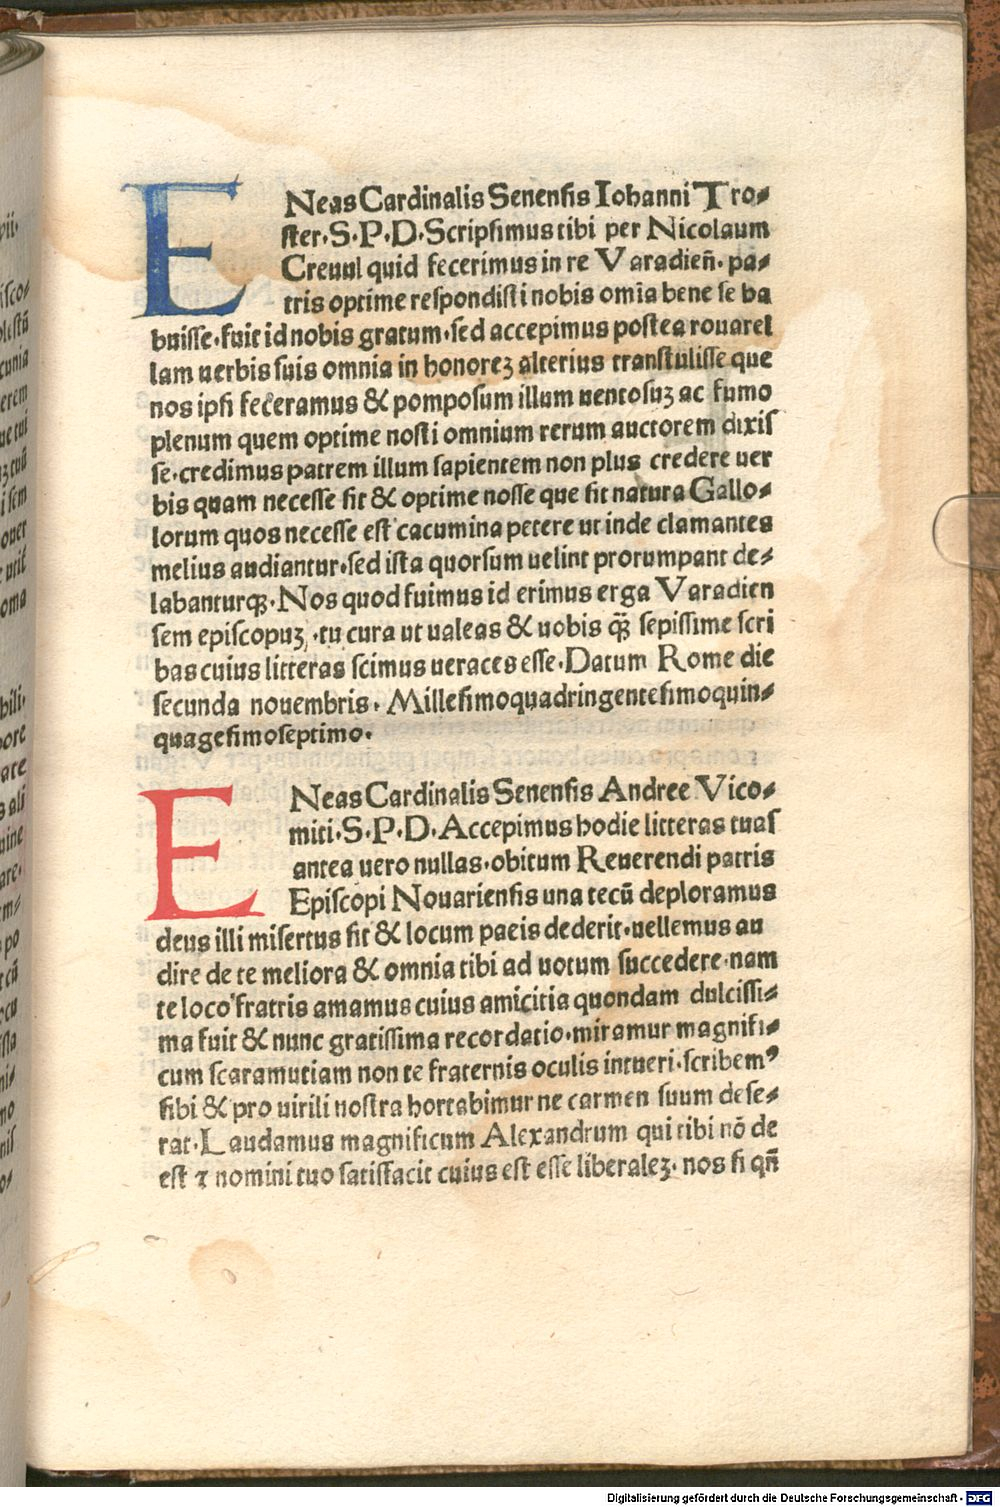 ENeas Cardinalis Senensis Iohanni Tro⸗
ster·S·P·D·Scripsimus tibi per Nicolaum
Creuul quid fecerimus in re Varadien̄· pa⸗
tris optime respondisti nobis om̄ia bene se ha
buisse·fuit id nobis gratum·sed accepimus postea rouarel
lam uerbis suis omnia in honoreꝫ alterius transtulisse que
nos ipsi feceramus & pomposum illum uentosuꝫ ac fumo
plenum quem optime nosti omnium rerum auctorem dixis
se·credimus patrem illum sapientem non plus credere uer
bis quam necesse sit & optime nosse que sit natura Gallo⸗
lorum quos necesse est cacumina petere ut inde clamantes
melius audiantur·sed ista quorsum uelint prorumpant de⸗
labanturqꝫ·Nos quod fuimus id erimus erga Varadien
sem episcopuꝫ ·tu cura ut ualeas & nobis q̄ꝫ sepissime scri
bas cuius litteras scimus ueraces esse·Datum Rome die
secunda nouembris· Millesimoquadringentesimoquin⸗
quagesimoseptimo·
ENeas Cardinalis Senensis Andree Vico⸗
miti·S·P·D·Accepimus hodie litteras tuas
antea uero nullas·obitum Reuerendi patris
Episcopi Nouariensis una tecū deploramus
deus illi misertus sit & locum pacis dederit·uellemus au
dire de te meliora & omnia tibi ad uotum succedere·nam
te loco fratris amamus cuius amicitia quondam dulcissi⸗
ma fuit & nunc gratissima recordatio·miramur magnifi⸗
cum scaramutiam non te fraternis oculis intueri·scribemꝰ
sibi & pro uirili nostra hortabimur ne carmen suum dese⸗
rat·Laudamus magnificum Alexandrum qui tibi nō de
est ⁊ nomini tuo satisfacit cuius est esse liberaleꝫ· nos si qn̄
Digitalisierung gefördert durch die Deutsche Forschungsgemeinschaft · DFG